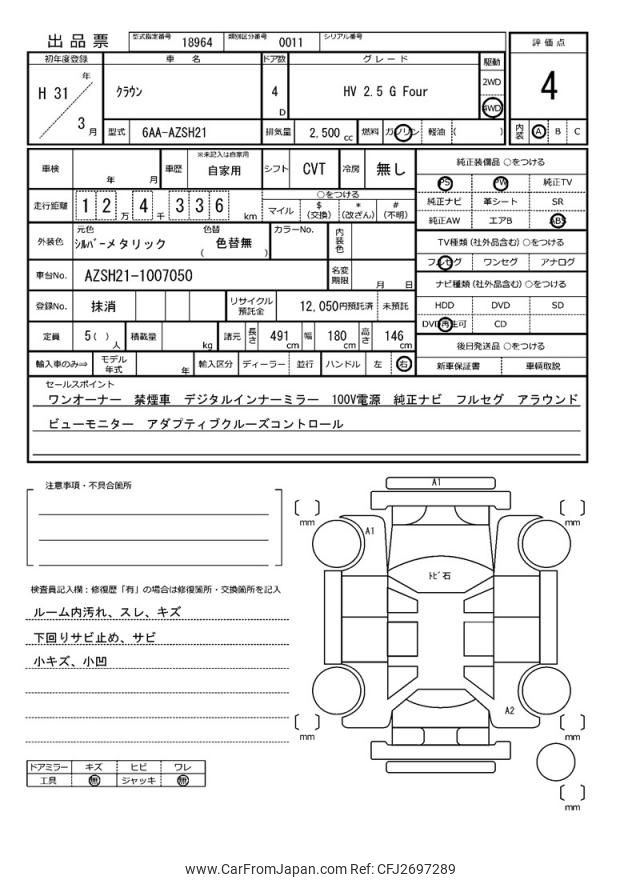 出品票 型式指定番号 18964 類別区分番号 0011 シリアル番号
評価点
4
内装 A B C
初年度登録 車名 ドア数 グレード 駆動
H 31 年 3 月
クラウン 4 D HV 2.5 G Four 2WD 4WD
型式 6AA-AZSH21 排気量 2,500 cc 燃料 ガソリン 軽油 ( )
車検 年 月 車歴 ※未記入は自家用 自家用 シフト CVT 冷房 無し
走行距離 1 2 万 4 千 3 3 6 km
○をつける
マイル $(交換) *(改ざん) #(不明)
外装色 元色 シルバーメタリック 色替 ( 色替無 ) カラーNo. 内装色
車台No. AZSH21-1007050 名変期限 月 日
登録No. 抹消 リサイクル預託金 12,050円預託済 未預託
定員 5 ( ) 人 積載量 kg 諸元 長さ 491 cm 幅 180 cm 高さ 146 cm
輸入車のみ⇒ モデル年式 年 輸入区分 ディーラー 並行 ハンドル 左 右
純正装備品 ○をつける
PS PW 純正TV
純正ナビ 革シート SR
純正AW エアB ABS
TV種類 (社外品含む) ○をつける
フルセグ ワンセグ アナログ
ナビ種類 (社外品含む) ○をつける
HDD DVD SD
DVD再生可 CD
後日発送品 ○をつける
新車保証書 車輌取説
セールスポイント
ワンオーナー 禁煙車 デジタルインナーミラー 100V電源 純正ナビ フルセグ アラウンド
ビューモニター アダプティブクルーズコントロール
注意事項・不具合箇所
検査員記入欄：修復歴「有」の場合は修復箇所・交換箇所を記入
ルーム内汚れ、スレ、キズ
下回りサビ止め、サビ
小キズ、小凹
ドアミラー キズ ヒビ ワレ
工具 無 ジャッキ 無
A1
A1
トビ石
A2
mm
mm
mm
mm
mm
www.CarFromJapan.com Ref: CFJ2697289